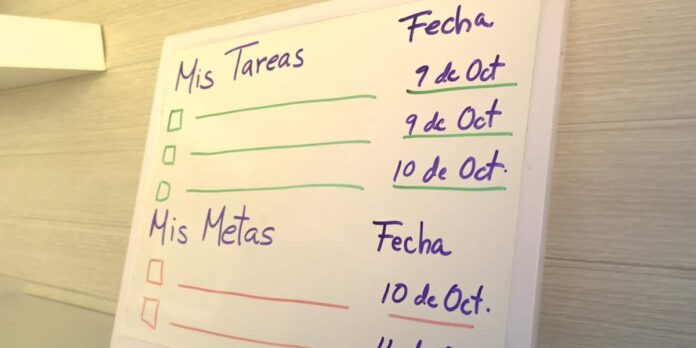 Mis Tareas Fecha
9 de Oct
9 de Oct
10 de Oct.
Mis Metas Fecha
10 de Oct.